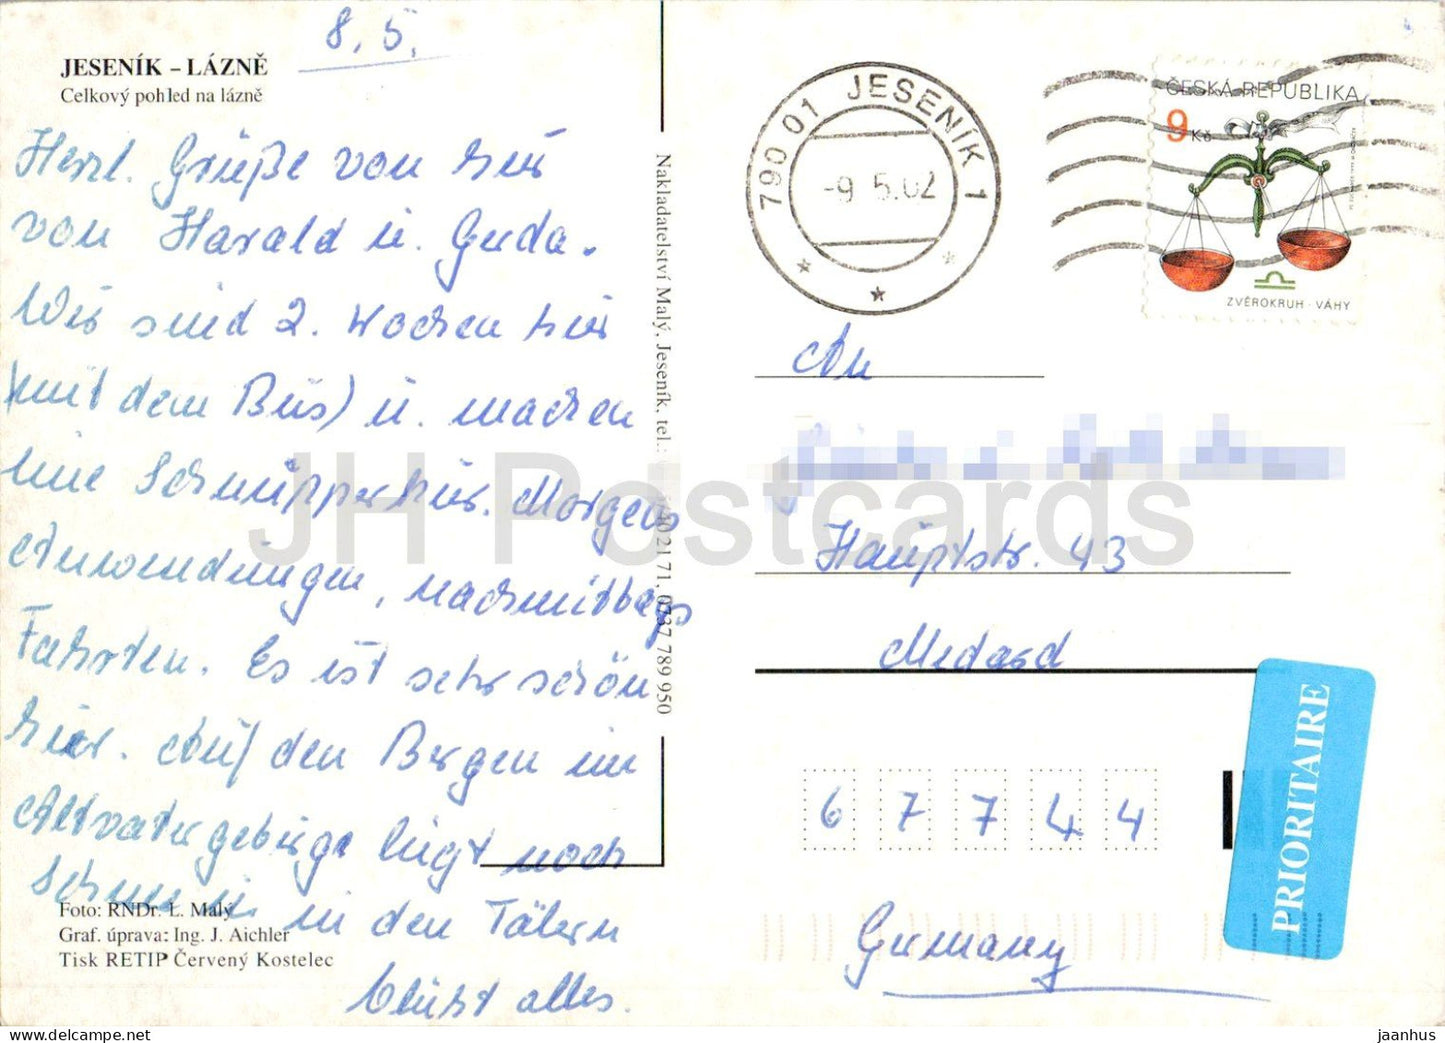 8.5.
JESENÍK – LÁZNĚ
Celkový pohled na lázně
Herzl. Grüße von hier
von Harald u. Guda.
Wir sind 2. Wochen hier
(mit dem Bus) u. machen
eine Schnupperkur. Morgens
Anwendungen, nachmittags
Fahrten. Es ist sehr schön
hier. Auf den Bergen im
Altvatergebirge liegt noch
Schnee u. in den Tälern
blüht alles.
Foto: RNDr. L. Malý
Graf. úprava: Ing. J. Aichler
Tisk RETIP Červený Kostelec
Nakladatelství Malý, Jeseník, tel.: 40 21 71, 0737 789 950
790 01 JESENÍK 1
-9.5.02
ČESKÁ REPUBLIKA
9 Kč
ZVĚROKRUH · VÁHY
An
Hauptstr. 43
Medard
6 7 7 4 4
Germany
PRIORITAIRE
JH Postcards
DELCAMPE
jaanhus